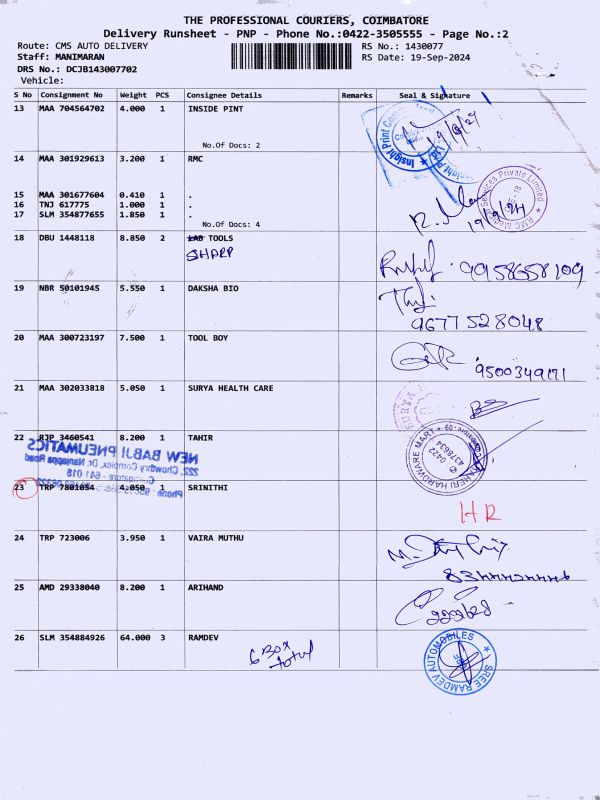 THE PROFESSIONAL COURIERS, COIMBATORE
Delivery Runsheet - PNP - Phone No.:0422-3505555 - Page No.:2
Route: CMS AUTO DELIVERY RS No.: 1430077
Staff: MANIMARAN RS Date: 19-Sep-2024
DRS No.: DCJB143007702
Vehicle:
S No Consignment No Weight PCS Consignee Details Remarks Seal & Signature
13 MAA 704564702 4.000 1 INSIDE PINT
No.Of Docs: 2
19/9/24
14 MAA 301929613 3.200 1 RMC
15 MAA 301677604 0.410 1 .
16 TNJ 617775 1.000 1 .
17 SLM 354877655 1.850 1 .
No.Of Docs: 4
19/9/24
18 DBU 1448118 8.850 2 LAB TOOLS
SHARP
9958658109
19 NBR 50101945 5.550 1 DAKSHA BIO
9677528048
20 MAA 300723197 7.500 1 TOOL BOY
9500349171
21 MAA 302033818 5.050 1 SURYA HEALTH CARE
22 RJP 3460541 8.200 1 TAHIR
NEW BABJI PNEUMATICS
23 TRP 7801054 4.050 1 SRINITHI
HR
24 TRP 723006 3.950 1 VAIRA MUTHU
25 AMD 29338040 8.200 1 ARIHAND
26 SLM 354884926 64.000 3 RAMDEV
6 Box
total
SREE RAMDEV AUTOMOBILES